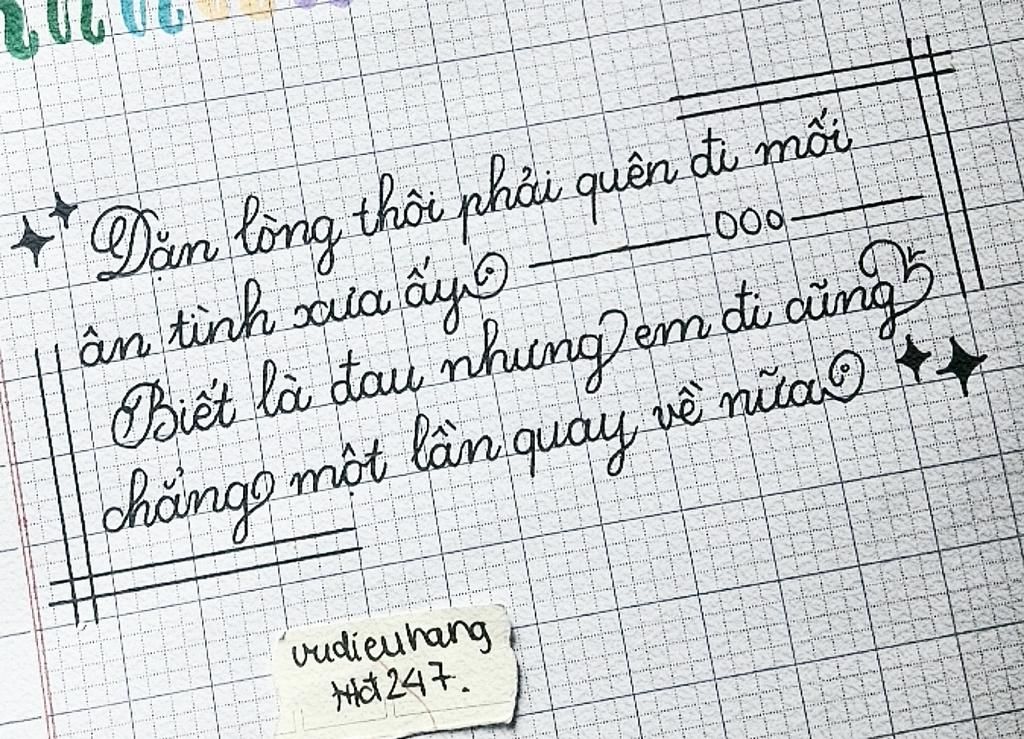 Dặn lòng thôi phải quên đi mối
ân tình xưa ấy
Biết là đau nhưng em đi cũng
chẳng một lần quay về nữa
vudieuhang
247.